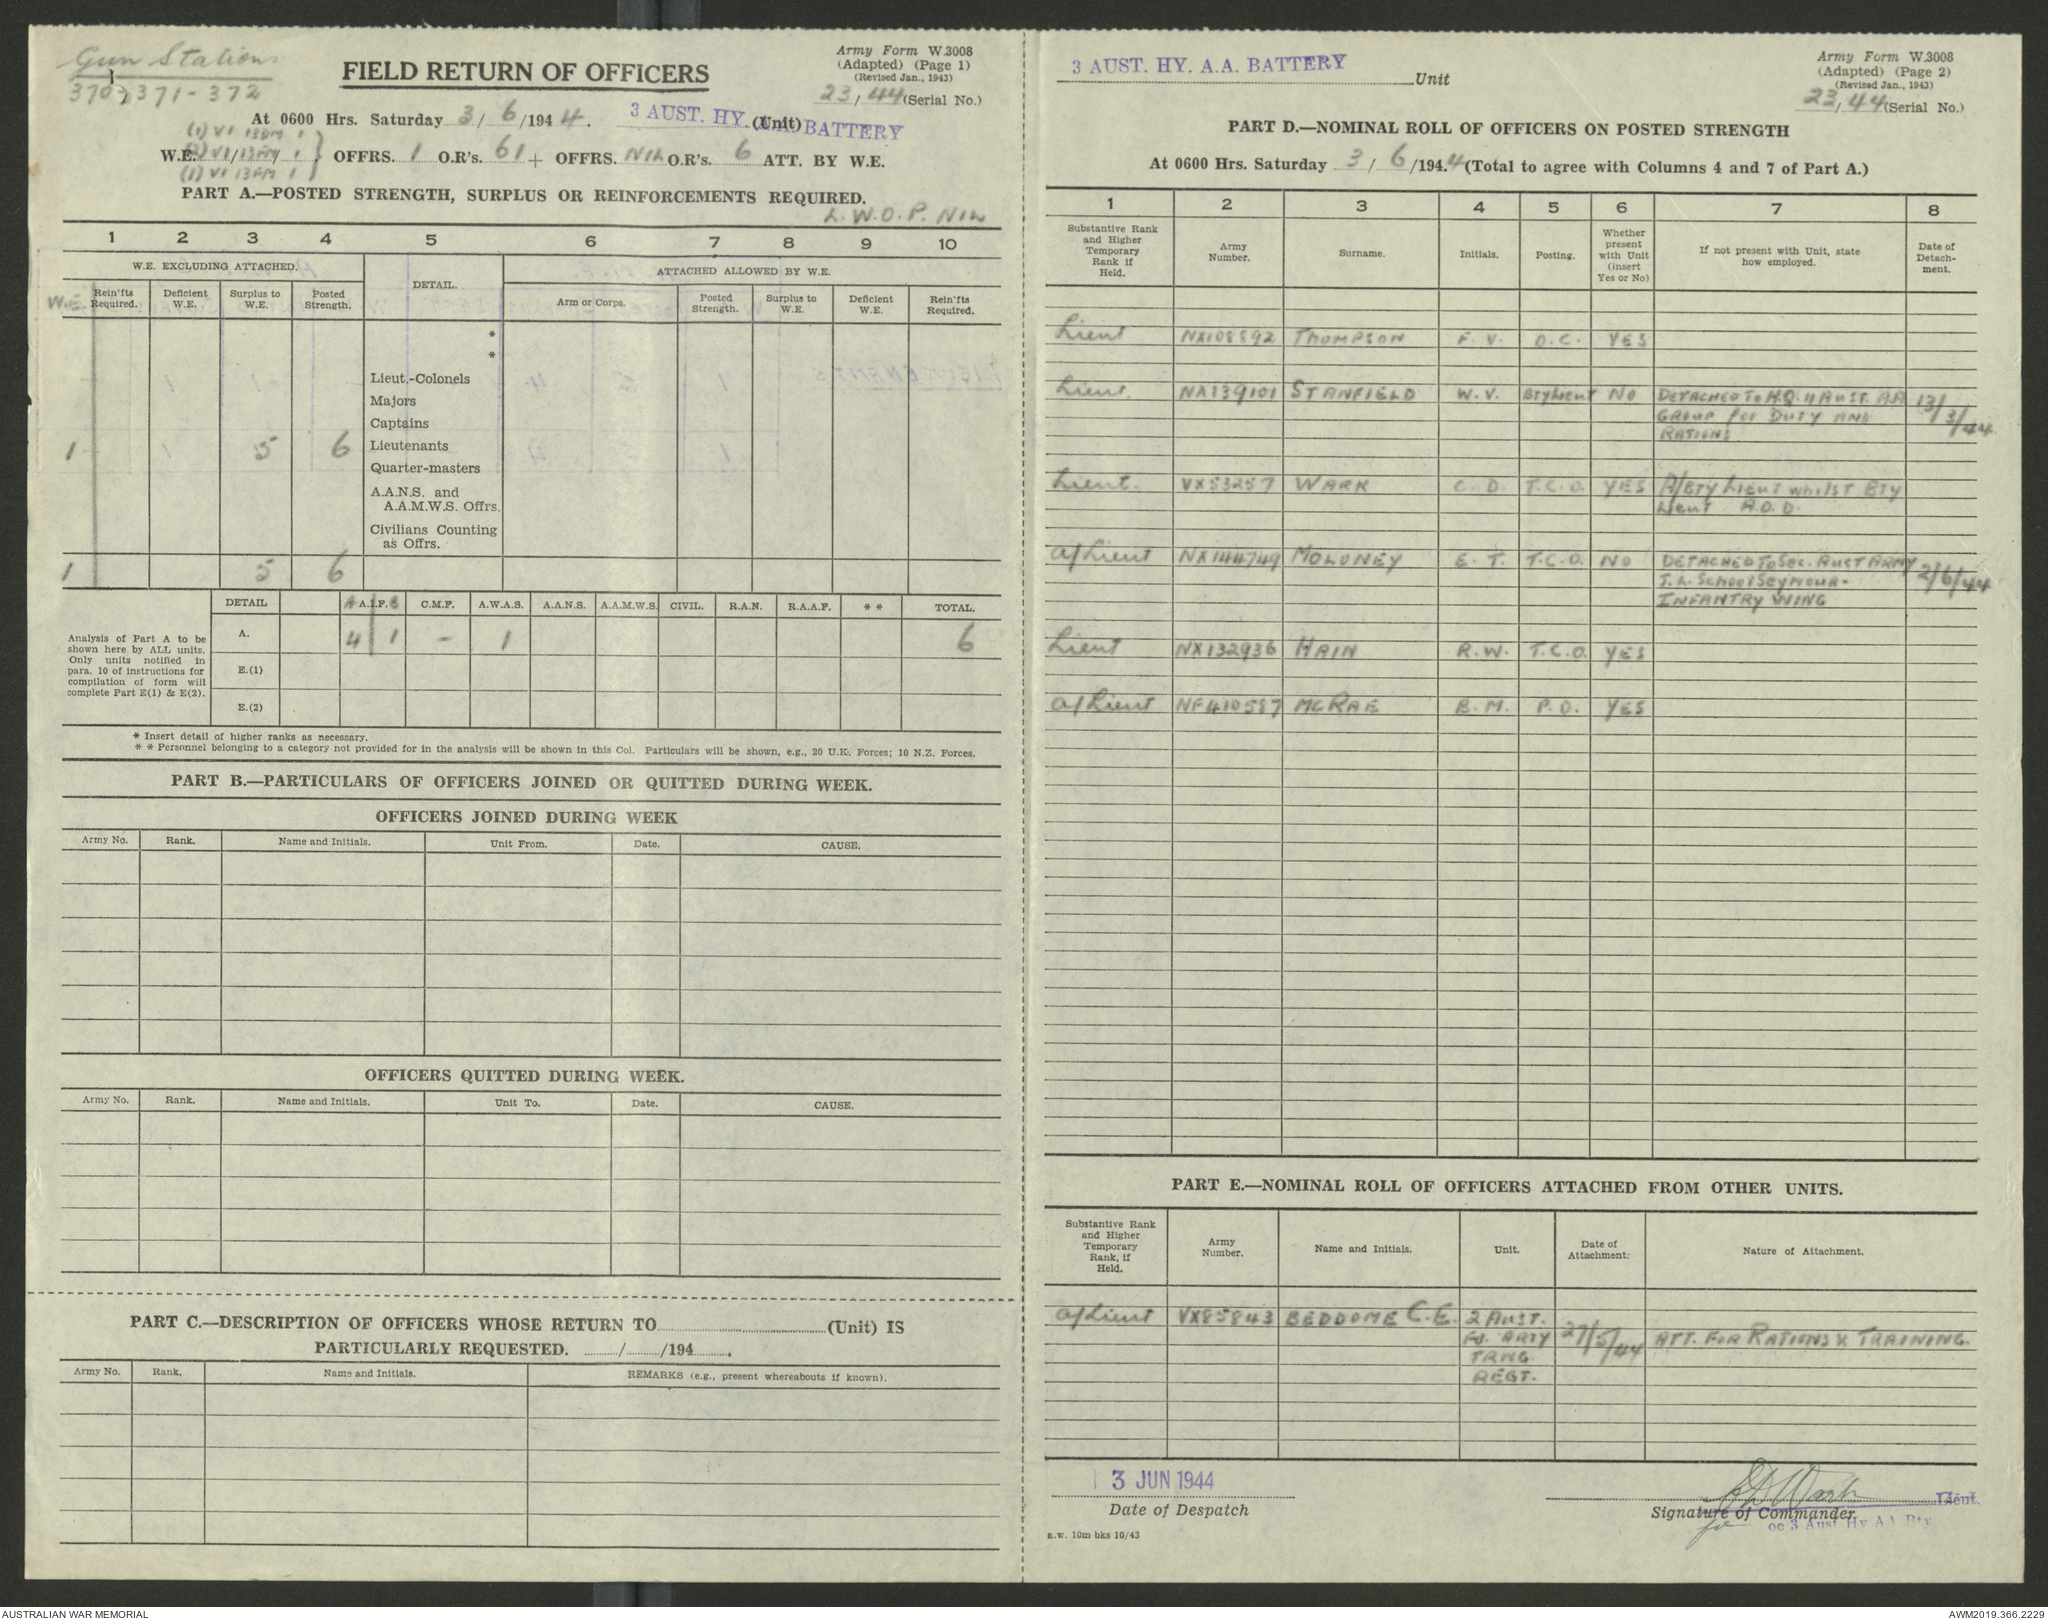 Gun Stations
370, 371 - 372
FIELD RETURN OF OFFICERS
Army Form W.3008
(Adapted) (Page 1)
(Revised Jan., 1943)
23/44 (Serial No.)
At 0600 Hrs. Saturday 3/6/1944. 3 AUST. HY. A.A. BATTERY (Unit)
(1) VI 13DM 1
W.E. (2) VI/13FM/1 OFFRS. 1 O.R's. 61 + OFFRS. NIL O.R's. 6 ATT. BY W.E.
(1) VI 13FM 1
PART A.—POSTED STRENGTH, SURPLUS OR REINFORCEMENTS REQUIRED.
L.W.O.P. NIL
1 2 3 4 5 6 7 8 9 10
W.E. EXCLUDING ATTACHED. DETAIL. ATTACHED ALLOWED BY W.E.
W.E. Rein'fts Required. Deficient W.E. Surplus to W.E. Posted Strength. Arm or Corps. Posted Strength. Surplus to W.E. Deficient W.E. Rein'fts Required.
*
*
Lieut.-Colonels
Majors
Captains
1 5 6 Lieutenants
Quarter-masters
A.A.N.S. and
A.A.M.W.S. Offrs.
Civilians Counting
as Offrs.
1 5 6
DETAIL A.I.F. C.M.F. A.W.A.S. A.A.N.S. A.A.M.W.S. CIVIL. R.A.N. R.A.A.F. * * TOTAL.
Analysis of Part A to be
shown here by ALL units.
Only units notified in
para. 10 of instructions for
compilation of form will
complete Part E(1) & E(2).
A. 4 1 - 1 6
E.(1)
E.(2)
* Insert detail of higher ranks as necessary.
* * Personnel belonging to a category not provided for in the analysis will be shown in this Col. Particulars will be shown, e.g., 20 U.K. Forces; 10 N.Z. Forces.
PART B.—PARTICULARS OF OFFICERS JOINED OR QUITTED DURING WEEK.
OFFICERS JOINED DURING WEEK
Army No. Rank. Name and Initials. Unit From. Date. CAUSE.
OFFICERS QUITTED DURING WEEK.
Army No. Rank. Name and Initials. Unit To. Date. CAUSE.
PART C.—DESCRIPTION OF OFFICERS WHOSE RETURN TO (Unit) IS
PARTICULARLY REQUESTED. / /194 .
Army No. Rank. Name and Initials. REMARKS (e.g., present whereabouts if known).
3 AUST. HY. A.A. BATTERY Unit
Army Form W.3008
(Adapted) (Page 2)
(Revised Jan., 1943)
23/44 (Serial No.)
PART D.—NOMINAL ROLL OF OFFICERS ON POSTED STRENGTH
At 0600 Hrs. Saturday 3/6/1944 (Total to agree with Columns 4 and 7 of Part A.)
1 2 3 4 5 6 7 8
Substantive Rank and Higher Temporary Rank if Held. Army Number. Surname. Initials. Posting. Whether present with Unit (insert Yes or No) If not present with Unit, state how employed. Date of Detachment.
Lieut NX108592 THOMPSON F. V. O.C. YES
Lieut. NX139101 STANFIELD W. V. Bty Lieut NO DETACHED TO H.Q. 11 AUST. AA 13/3/44
GROUP for DUTY AND
RATIONS
Lieut. VX53257 WARK C. D. T.C.O. YES A/BTY LIEUT WHILST BTY
LIEUT A.O.D.
A/Lieut NX144749 MOLONEY E. T. T.C.O. NO DETACHED TO Sec. AUST ARMY 2/6/44
T.L. School SEYMOUR -
INFANTRY WING
Lieut NX132936 HAIN R.W. T.C.O. YES
A/Lieut NF410587 MCRAE B.M. P.O. YES
PART E.—NOMINAL ROLL OF OFFICERS ATTACHED FROM OTHER UNITS.
Substantive Rank and Higher Temporary Rank, if Held. Army Number. Name and Initials. Unit. Date of Attachment. Nature of Attachment.
A/Lieut VX85843 BEDDOME C.E. 2 AUST.
Fd. ARTY 27/5/44 ATT. FOR RATIONS & TRAINING.
TRNG
REGT.
3 JUN 1944
Date of Despatch
a.w. 10m bks 10/43
CD Wark Lieut.
Signature of Commander
for OC 3 Aust Hy AA Bty
AUSTRALIAN WAR MEMORIAL
AWM2019.366.2229